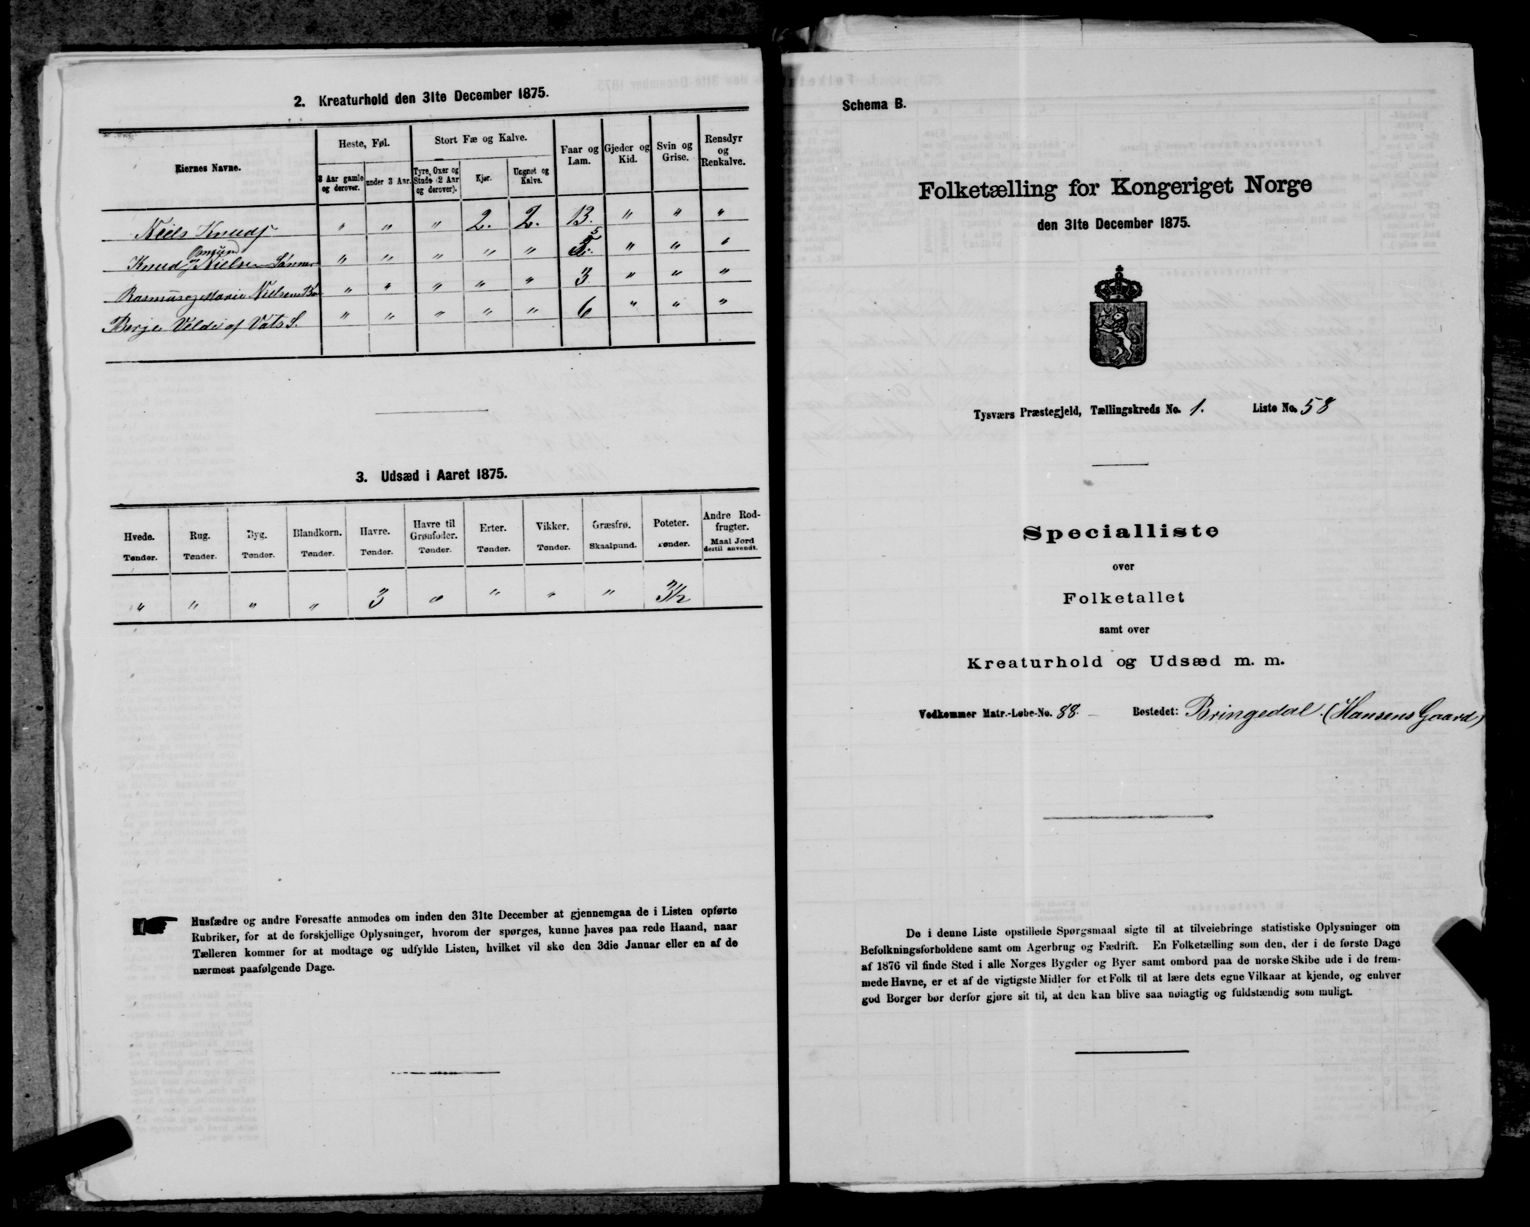 2. Kreaturhold den 31te December 1875.
Eiernes Navne.
Heste, Føl.
Stort Fæ og Kalve.
Faar og Lam.
Gjeder og Kid.
Svin og Grise.
Rensdyr og Renkalve.
3 Aar gamle og derover.
under 3 Aar.
Tyre, Oxer og Stude (2 Aar og derover).
Kjør.
Ungnøt og Kalve.
Niels Knuds " " " 2. 2. 13. " " "
Osmund
Knud og Nielse Sønner " " " " " 5 " " "
Rasmus og Marie Nielsens " " " " " 3 " " "
Berge Velde af Vats S. " " " " " 6 " " "
3. Udsæd i Aaret 1875.
Hvede. Rug. Byg. Blandkorn. Havre. Havre til Grønfoder. Erter. Vikker. Græsfrø. Poteter. Andre Rodfrugter.
Tønder. Tønder. Tønder. Tønder. Tønder. Tønder. Tønder. Tønder. Skaalpund. Tønder. Maal Jord dertil anvendt.
" " " " 3 " " " " 3½
Husfædre og andre Foresatte anmodes om inden den 31te December at gjennemgaa de i Listen opførte
Rubriker, for at de forskjellige Oplysninger, hvorom der spørges, kunne haves paa rede Haand, naar
Tælleren kommer for at modtage og udfylde Listen, hvilket vil ske den 3die Januar eller en af de
nærmest paafølgende Dage.
Schema B.
Folketælling for Kongeriget Norge
den 31te December 1875.
Tysværs Præstegjeld, Tællingskreds No. 1. Liste No. 58
Specialliste
over
Folketallet
samt over
Kreaturhold og Udsæd m. m.
Vedkommer Matr.-Løbe-No. 88. Bostedet: Bringedal (Hansens Gaard)
De i denne Liste opstillede Spørgsmaal sigte til at tilveiebringe statistiske Oplysninger om
Befolkningsforholdene samt om Agerbrug og Fædrift. En Folketælling som den, der i de første Dage
af 1876 vil finde Sted i alle Norges Bygder og Byer samt ombord paa de norske Skibe ude i de frem-
mede Havne, er et af de vigtigste Midler for et Folk til at lære dets egne Vilkaar at kjende, og enhver
god Borger bør derfor gjøre sit til, at den kan blive saa nøiagtig og fuldstændig som muligt.